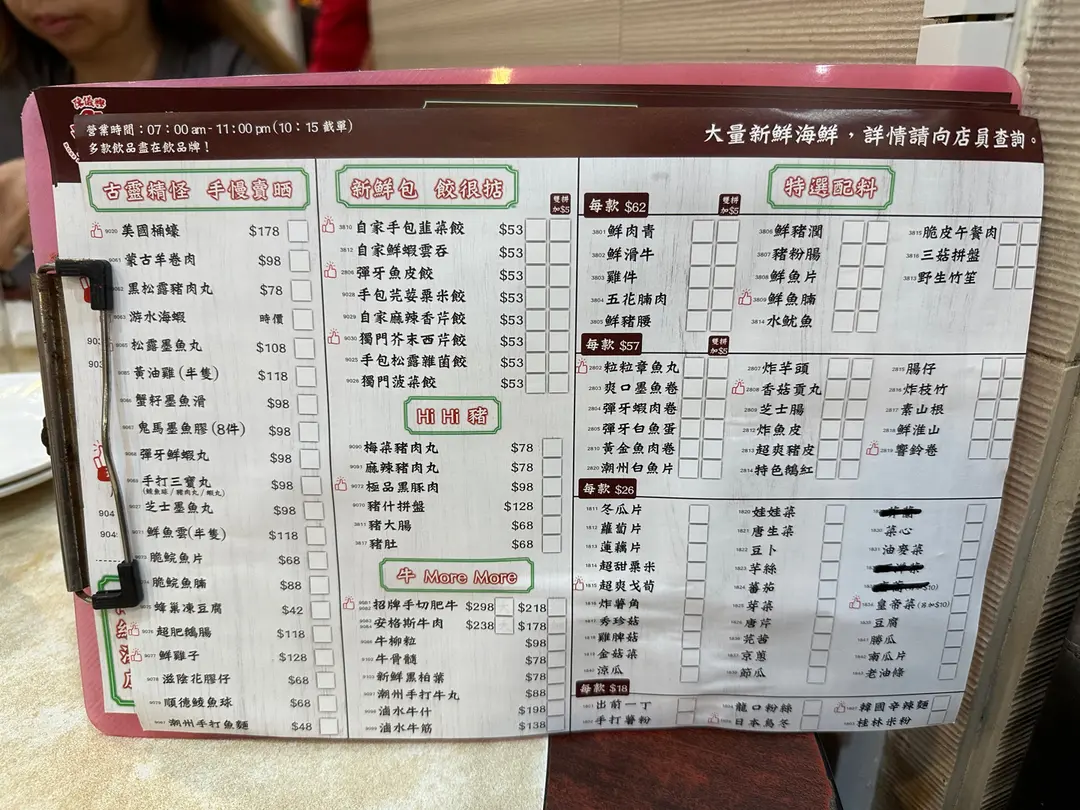 營業時間：07：00 am - 11：00 pm (10：15 截單)
多款飲品盡在飲品牌！
大量新鮮海鮮，詳情請向店員查詢。
古靈精怪 手慢賣晒
9020 美國桶蠔 $178
9061 蒙古羊卷肉 $98
9062 黑松露豬肉丸 $78
9063 游水海蝦 時價
9085 松露墨魚丸 $108
黃油雞(半隻) $118
9086 蟹籽墨魚滑 $98
9067 鬼馬墨魚膠(8件) $98
9068 彈牙鮮蝦丸 $98
9069 手打三寶丸 $98
(鯪魚球/豬肉丸/蝦丸)
芝士墨魚丸 $98
鮮魚雲(半隻) $118
脆鯇魚片 $68
脆鯇魚腩 $88
9075 蜂巢凍豆腐 $42
9076 超肥鵝腸 $118
9077 鮮雞子 $128
9078 滋陰花膠仔 $68
9079 順德鯪魚球 $68
9087 潮州手打魚麵 $48
新鮮包 餃很掂
雙拼加$5
3810 自家手包韮菜餃 $53
3812 自家鮮蝦雲吞 $53
2806 彈牙魚皮餃 $53
9028 手包芫荽粟米餃 $53
9029 自家麻辣香芹餃 $53
9030 獨門芥末西芹餃 $53
9025 手包松露雜菌餃 $53
9026 獨門菠菜餃 $53
Hi Hi 豬
9090 梅菜豬肉丸 $78
9091 麻辣豬肉丸 $78
9072 極品黑豚肉 $98
9070 豬什拼盤 $128
3811 豬大腸 $68
3817 豬肚 $68
牛 More More
招牌手切肥牛 $298 大 $218
安格斯牛肉 $238 大 $178
牛柳粒 $98
牛骨髓 $78
新鮮黑柏葉 $78
潮州手打牛丸 $88
滷水牛什 $198
滷水牛筋 $138
特選配料
每款 $62
雙拼加$5
3801 鮮肉青
3802 鮮滑牛
3803 雞件
3804 五花腩肉
3805 鮮豬腰
3806 鮮豬潤
3807 豬粉腸
3808 鮮魚片
3809 鮮魚腩
3814 水魷魚
3815 脆皮午餐肉
3816 三菇拼盤
3813 野生竹笙
每款 $57
雙拼加$5
2802 粒粒章魚丸
2803 爽口墨魚卷
2804 彈牙蝦肉卷
2805 彈牙白魚蛋
2810 黃金魚肉卷
2820 潮州白魚片
2807 炸芋頭
2808 香菇貢丸
2809 芝士腸
2812 炸魚皮
2813 超爽豬皮
2814 特色鵝紅
2815 腸仔
2816 炸枝竹
2817 素山根
2818 鮮淮山
2819 響鈴卷
每款 $26
1811 冬瓜片
1812 蘿蔔片
1813 蓮藕片
1814 超甜粟米
1815 超爽戈荀
1816 炸薯角
1817 秀珍菇
1818 雞脾菇
1819 金菇菜
涼瓜
1820 娃娃菜
1821 唐生菜
1822 豆卜
1823 芋絲
1824 番茄
芽菜
唐芹
芫茜
京蔥
節瓜
菜心
油麥菜
1834 皇帝菜(另加$10)
豆腐
勝瓜
南瓜片
老油條
每款 $18
出前一丁
手打薯粉
龍口粉絲
日本烏冬
韓國辛辣麵
桂林米粉